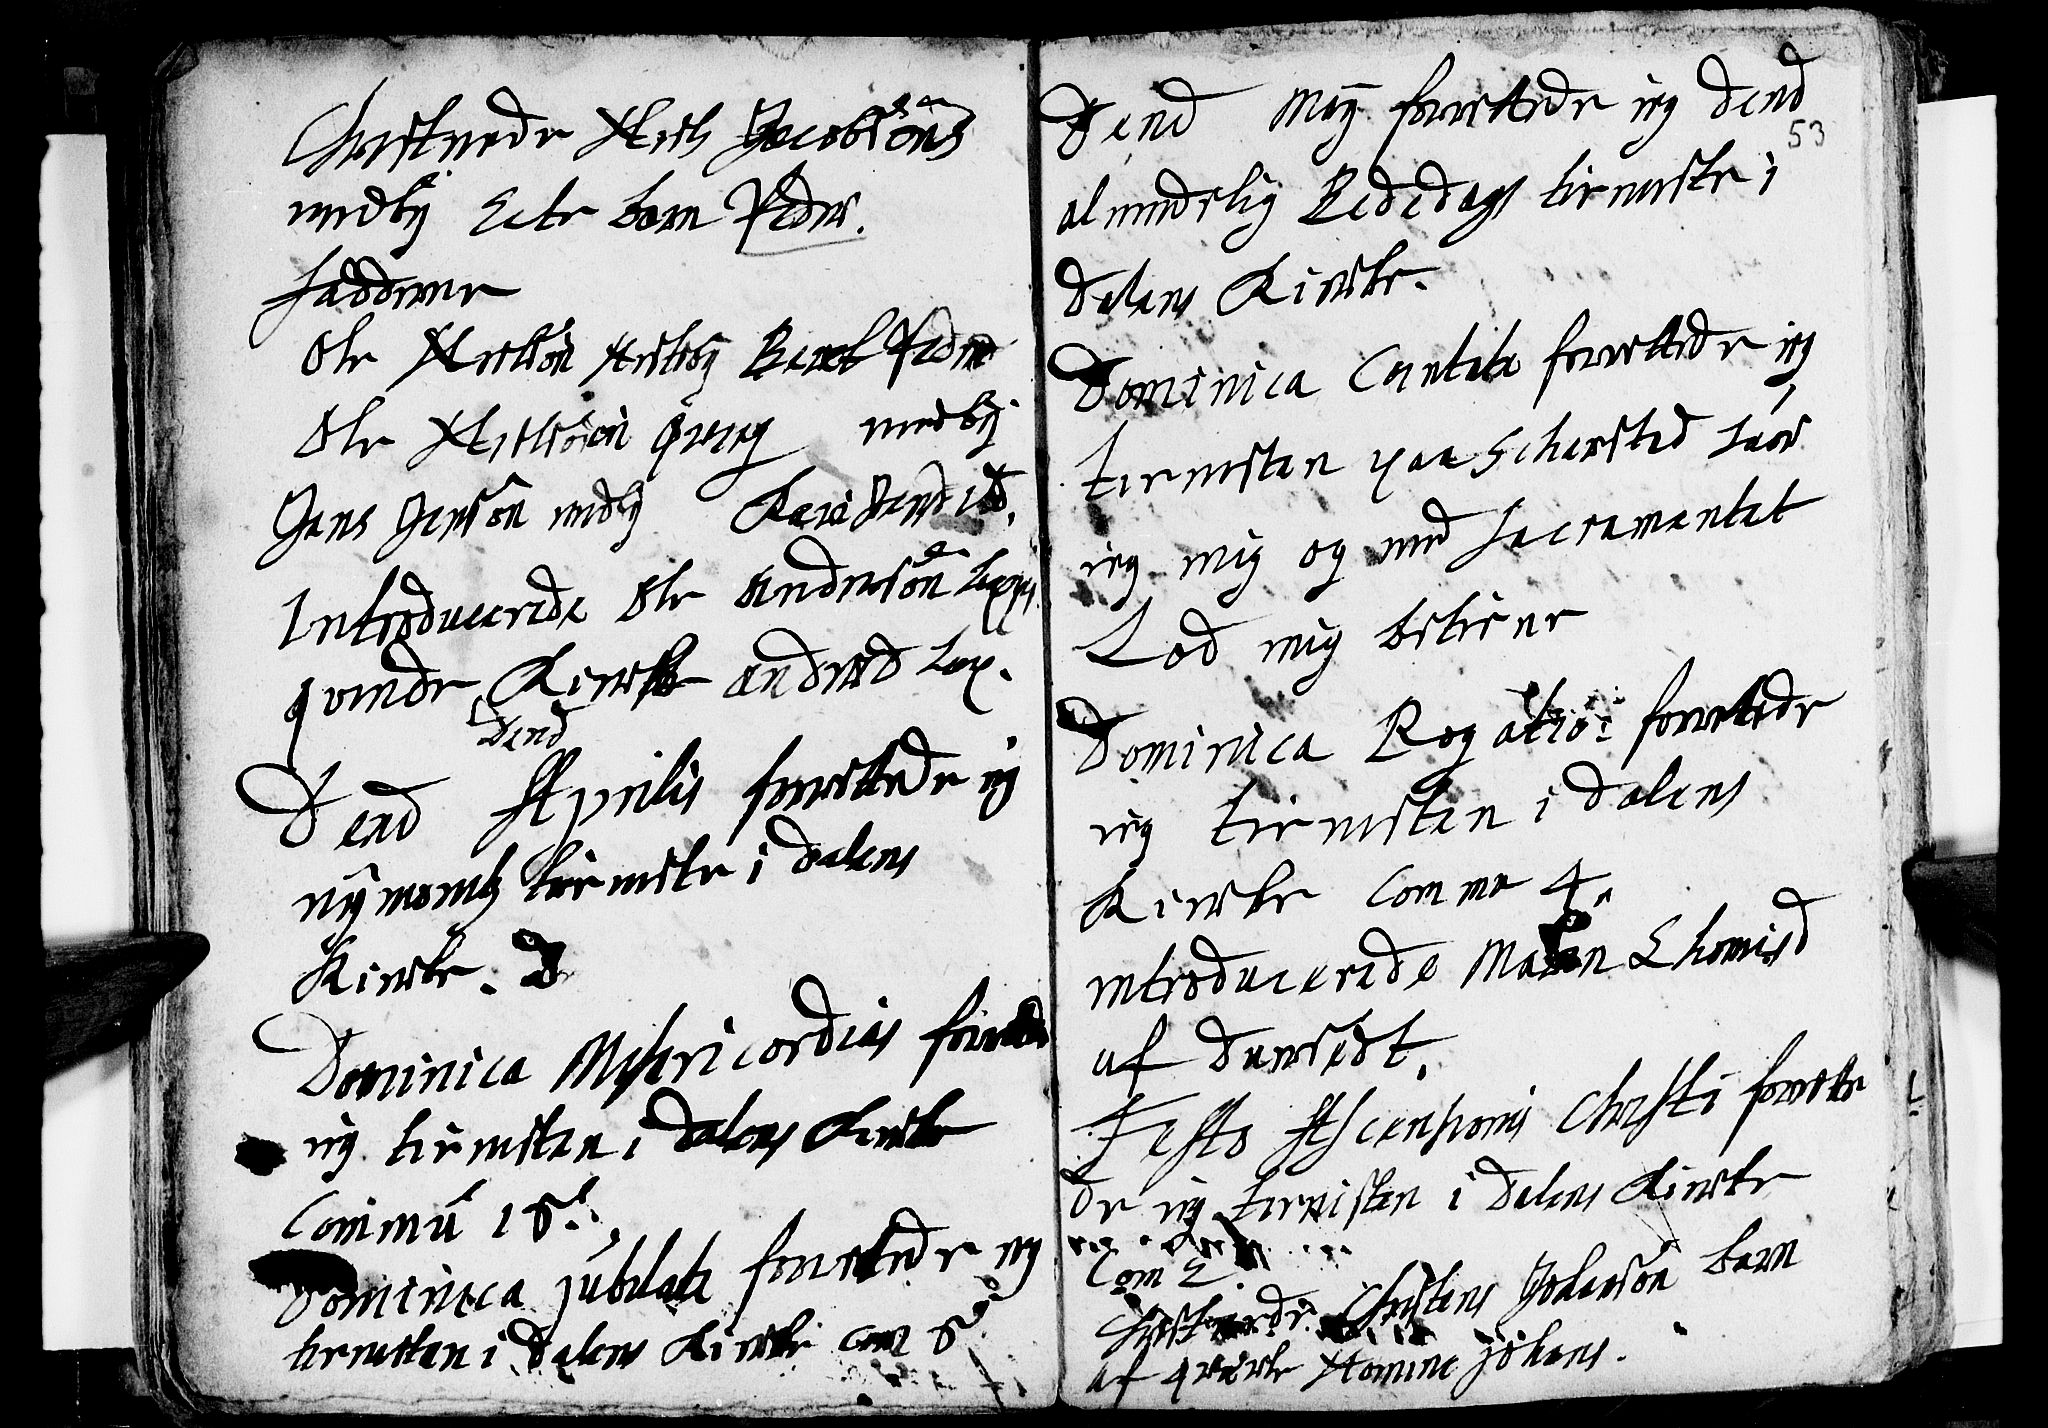 Christnede Niels Jacobsöns
nedby Ecte barn Peder.
Faddrene
Ole Nielsön Nedby Beret Peders
Ole Nielsöen qverg nedby
Jens Jensön nedby Kari Jensd.
Introducerede Ole Andersöns
qvinde, Kirste Andersd
Dend
Dend Aprilis forrettede ieg
nÿ tienniste i Dalens
Kircke.
Dominica Misericordias forrettede
ieg tiennisten i Dalens Kircke
Commu 18.
Dominica jubilate forrettede ieg
tiennisten i Dalens Kircke com 8
53
Dend Maÿ forrettede ieg dend
almindelig Bededags tienniste i
Dalens Kircke.
Dominica Cantate forrettede ieg
tiennisten paa hvor
ieg mig og med Sacramentet
Lod mig betiene
Dominica Rogatio: forrettede
ieg tiennisten i Dalens
Kircke Comme 4.
introducerede Maren Thomisd
af
Festo Ascensionis Christi forrette
de ieg tiennisten i Dalens Kircke
Com 2.
Christnede Christens Johansön barn
af Nomine Johans.